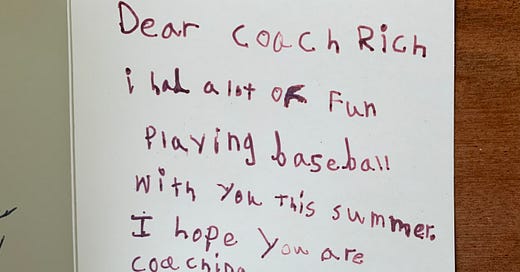 Dear Coach Rich
i had a lot of Fun
Playing baseball
with you this summer.
I hope you are
coaching